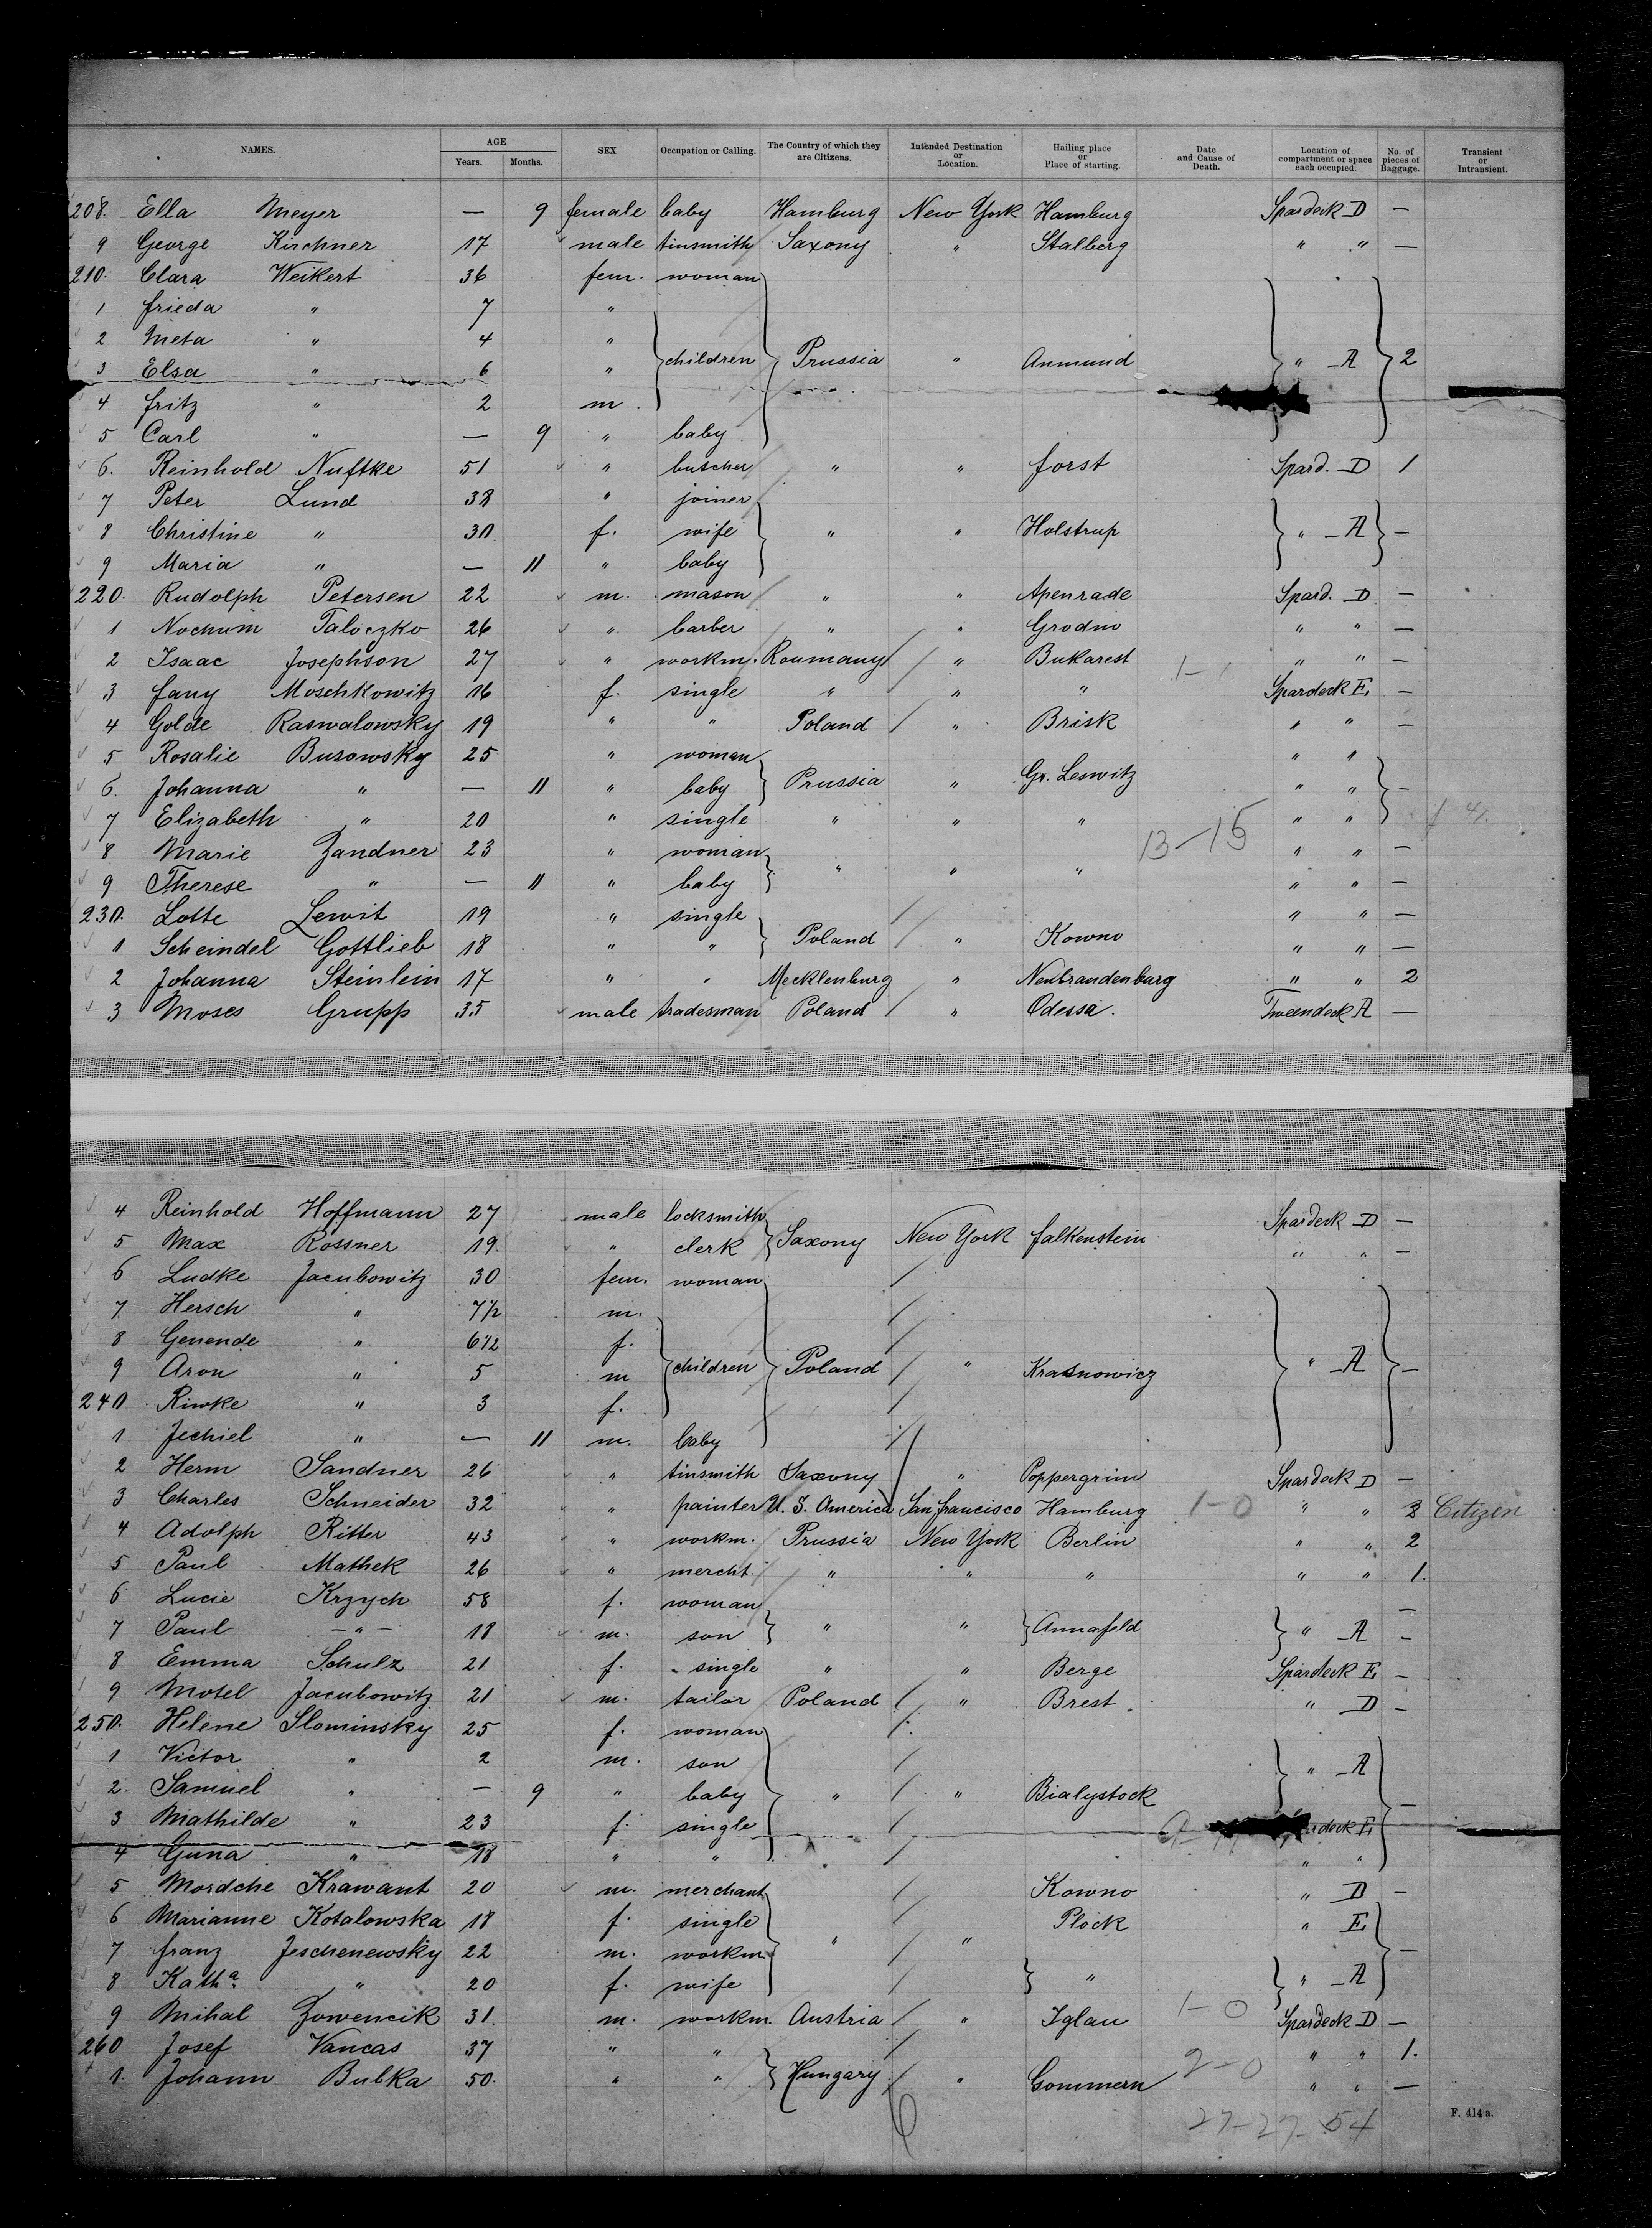 NAMES. AGE SEX Occupation or Calling. The Country of which they are Citizens. Intended Destination or Location. Hailing place or Place of starting. Date and Cause of Death. Location of compartment or space each occupied. No. of pieces of Baggage. Transient or Intransient.
Years. Months.
208. Ella Meyer — 9 female baby Hamburg New York Hamburg Spardeck D —
9 George Kirchner 17 male tinsmith Saxony " Stalberg " " —
210. Clara Weikert 36 fem. woman
1 Frieda " 7 "
2 Meta " 4 "
3 Elsa " 6 " children Prussia " Anmund " — A 2
4 Fritz " 2 m
5 Carl " — 9 " baby
6. Reinhold Nuftke 51 " butcher " " Forst Spard. D 1
7 Peter Lund 38 " joiner
8 Christine " 30 f. wife " " Holstrup " — A —
9 Maria " — 11 " baby
220. Rudolph Petersen 22 m. mason " " Apenrade Spard. D —
1 Nochum Taloczko 26 " barber " " Grodno " " —
2 Isaac Josephson 27 " workm. Roumany " Bukarest " " —
3 Fany Moschkowitz 16 f. single " " " Spardeck E. —
4 Golde Raswalowsky 19 " " Poland " Brisk " " —
5 Rosalie Busowsky 25 " woman " "
6. Johanna " — 11 " baby Prussia " Gr. Leswitz " " —
7 Elizabeth " 20 " single " " " " "
8 Marie Zandner 23 " woman 13-15 " " —
9 Therese " — 11 " baby " " " " " —
230. Lotte Lewit 19 " single " " —
1 Scheindel Gottlieb 18 " " Poland " Kowno " " —
2 Johanna Steinlein 17 " " Mecklenburg " Neubrandenburg " " 2
3 Moses Grupp 35 male tradesman Poland " Odessa. Tweendeck A —
4 Reinhold Hoffmann 27 male locksmith Spardeck D —
5 Max Rossner 19 " clerk Saxony New York Falkenstein " " —
6 Ludke Jacubowitz 30 fem. woman
7 Hersch " 7½ m.
8 Genende " 6½ f.
9 Aron " 5 m children Poland " Krasnowicz " — A —
240 Riwke " 3 f.
1 Jechiel " — 11 m. baby
2 Herm Sandner 26 " tinsmith Saxony " Poppergrün Spardeck D —
3 Charles Schneider 32 " painter U. S. America San Francisco Hamburg 1-0 " " 3 Citizen
4 Adolph Ritter 43 " workm. Prussia New York Berlin " " 2
5 Paul Mathek 26 " mercht. " " " " " 1.
6 Lucie Krzych 58 f. woman —
7 Paul — " — 18 m. son " " Annafeld " — A —
8 Emma Schulz 21 f. single " " Berge Spardeck E. —
9 Motel Jacubowitz 21 m. tailor Poland " Brest. " D —
250. Helene Slominsky 25 f. woman
1 Victor " 2 m. son " — A
2 Samuel " — 9 " baby " " Bialystock —
3 Mathilde " 23 f. single deck E.
4 Guna " 18 " " " "
5 Mordche Krawant 20 m. merchant Kowno " D —
6 Marianne Kotalowska 18 f. single Plock " E.
7 Franz Jeschenewsky 22 m. workm. " " —
8 Katha. " 20 f. wife " " — A
9 Mihal Zowencik 31. m. workm. Austria " Iglau 1-0 Spardeck D —
260 Josef Vancas 37 " " " " 1.
1. Johann Bubka 50. " " Hungary " Gommern 2-0 " " —
27-27-54
F. 414 a.